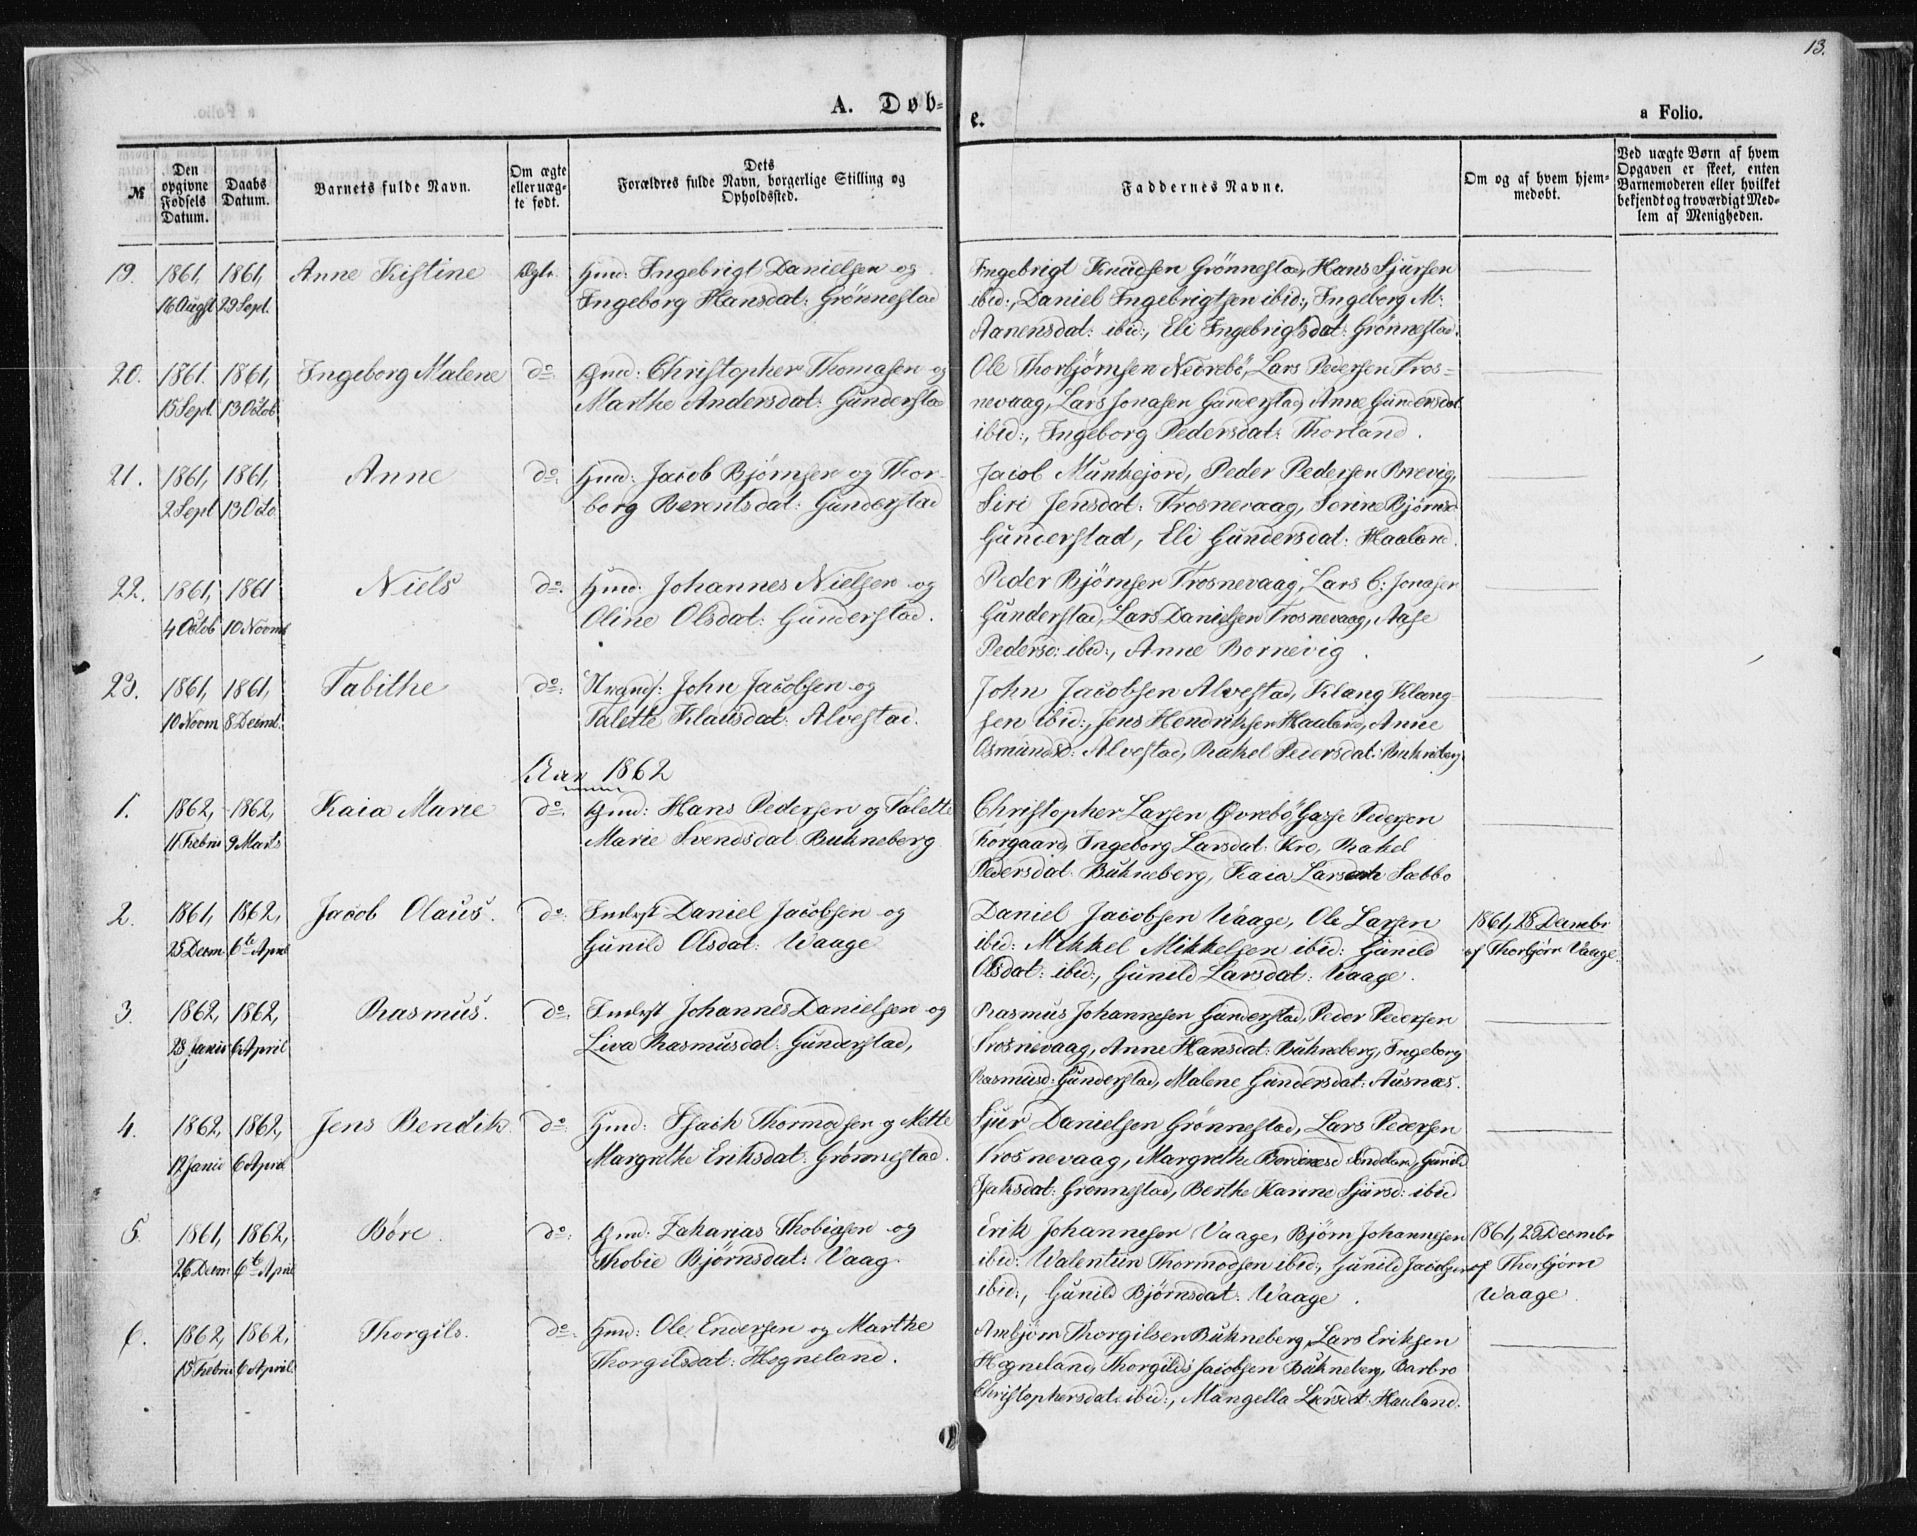 13.
A. Døb-
e.
a Folio.
№
Den opgivne Fødsels Datum.
Daabs Datum.
Barnets fulde Navn.
Om ægte eller uæg-te født.
Dets
Forældres fulde Navn, borgerlige Stilling og
Opholdssted.
Faddernes Navne.
Om og af hvem hjem-
medøbt.
Ved uægte Børn af hvem
Opgaven er skeet, enten
Barnemoderen eller hvilket
bekjendt og troværdigt Med-
lem af Menigheden.
19. 1861, 1861, Anne Kistine Ægte. Gmd: Ingebrigt Danielsen og
16 Augst 29 Sept. Ingeborg Hansdat: Grønnestad
Ingebrigt Knudsen Grønnestad, Hans Sjursen
ibid:, Daniel Ingebrigtsen ibid:, Ingeborg M:
Aanensdat: ibid:, Eli Ingebrigtsdat: Grønnestad.
20. 1861. 1861, Ingeborg Malene do Gmd: Christopher Thomasen og
15 Sept. 13 Octob Marthe Andersdat: Gunderstad
Ole Thorbjørnsen Nedrebö, Lars Pedersen Tros-
nevaag, Lars Jonasen Gunderstad, Anne Gundersdat
ibid:, Ingeborg Pedersdat: Thorland.
21. 1861, 1861, Anne do. Gmd: Jacob Bjørnsen og Thor-
2 Sept 13 Octo borg Berentsdat: Gunderstad
Jacob Munkejord, Peder Pedersen Brevig,
Siri Jensdat: Trosnevaag, Serine Bjørnsd
Gunderstad, Eli Gundersdat: Haaland.
22. 1861, 1861 Niels do. Gmd: Johannes Nielsen og
4 Octob 10 Novmb Oline Olsdat: Gunderstad.
Peder Bjørnsen Trosnevaag, Lars C: Jonasen
Gunderstad, Lars Danielsen Trosnevaag, Aase
Pedersd: ibid:, Anne Bornevig.
23. 1861, 1861, Tabithe do: Strands: John Jacobsen og
10 Novm 8 Decmb. Talette Klausdat: Alvestad.
John Jacobsen Alvestad, Klang Klang-
sen ibid:, Jens Hendriksen Haaland, Anne
Osmundsd: Alvestad, Rakel Pedersdat: Bukneberg
Aar 1862
1. 1862, 1862, Kaia Marie do. Gmd: Hans Pedersen og Talette
11 Febru 9 Marts Marie Svendsdat: Bukneberg
Christopher Larsen Øvrebö, Gasse Pedersen
Korgaard, Ingeborg Larsdat: Kro, Rakel
Pedersdat: Bukneberg, Kaia Larsdat Sæbbø
2. 1861, 1862, Jacob Olaus. do: Inderst Daniel Jacobsen og
25 Decm 6te April Gunild Olsdat: Waage
Daniel Jacobsen Waage, Ole Larsen
ibid: Mikkel Mikkelsen ibid: Gunild
Olsdat: ibid:, Gunild Larsdat: Waage.
1861, 28 Decmbr
af Thorbjørn Vaage.
3. 1862, 1862, Rasmus. do. Inderst Johannes Danielsen og
28 Janu 6 April Liva Rasmusdat: Gunderstad,
Rasmus Johannesen Gunderstad, Peder Pedersen
Trosnevaag, Anne Hansdat: Bukneberg, Ingeborg
Rasmusd: Gunderstad, Malene Gundersdat: Ausnæs.
4. 1862, 1862, Jens Bendik. do. Gmd: Isach Thormodsen og Mette
17 Janu 6 April Margrethe Eriksdat: Grønnestad.
Sjur Danielsen Grønnestad, Lars Pedersen
Trosnevaag, Margrethe Gunild
Isaksdat: Grønnestad, Berthe Karine Sjursd: ibid
5. 1861, 1862, Børe. do. Gmd: Zakarias Thobiasen og
26 Decm 6te April Thobie Bjørnsdat: Vaag.
Erik Johannesen Vaage, Bjørn Johannesen
ibid: Walentin Thormodsen ibid:, Gunild Jacobsen
ibid:, Gunild Bjørnsdat: Waage.
1861, 26 Decmbr
af Thorbjørn
Waage
6. 1862, 1862, Thorgils. do. Gmd: Ole Endersen og Marthe
15 Febru 6 April. Thorgilsdat: Hogneland.
Anbjørn Thorgilsen Bukneberg, Lars Eriksen
Hogneland, Thorgils Jacobsen Bukneberg, Barbro
Christophersdat: ibid:, Mangella Larsdat: Haaland.